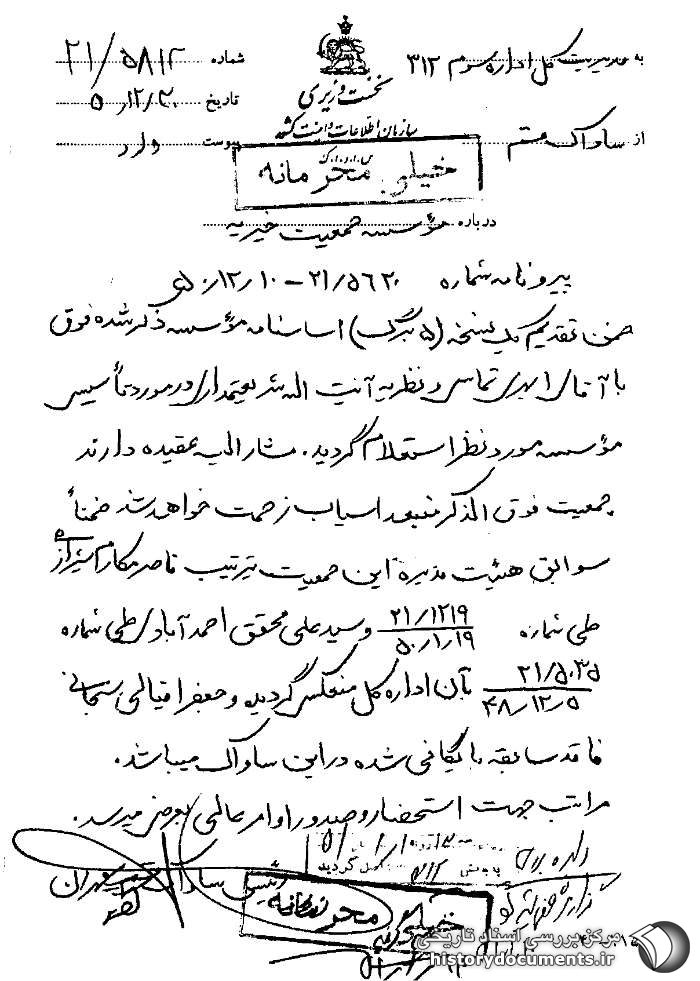 به مدیریت کل اداره سوم ۳۱۲
نخست وزیری
سازمان اطلاعات و امنیت کشور
س.ا.و.ا.ک
شماره ۲۱/۵۸۱۲
تاریخ ۵۰/۱۲/۲۰
پیوست دارد
از ساواک قم
خیلی محرمانه
درباره مؤسسه جمعیت خیریه
پیرو نامه شماره ۲۱/۵۶۲۰ – ۵۰/۱۲/۱۰
ضمن تقدیم یک نسخه (۵ برگ) اساسنامه مؤسسه ذکر شده فوق
با آقای تماس و نظریه آیت اله شریعتمداری در مورد تأسیس
مؤسسه مورد نظر استعلام گردید. مشارالیه عقیده دارند
جمعیت فوق الذکر اسباب زحمت خواهد شد ضمناً
سوابق هیئت مدیره این جمعیت بترتیب ناصر مکارم شیرازی
طی شماره ۲۱/۱۲۱۹ ۵۰/۱/۱۹ و سید علی محقق احمدآبادی طی شماره
۲۱/۵۰۳۵ ۴۸/۱۲/۵ بآن اداره کل منعکس گردیده و جعفر سبحانی
فاقد سابقه بایگانی شده در این ساواک میباشد.
مراتب جهت استحضار و صدور اوامر عالی بعرض میرسد.
رئیس ساواک
خیلی محرمانه
مرکز بررسی اسناد تاریخی
historydocuments.ir